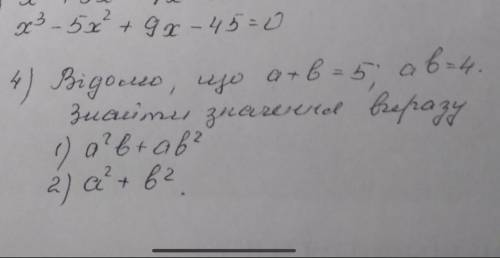 x³ - 5x² + 9x - 45 = 0
4) Відомо, що a + b = 5; ab = 4.
Знайти значення виразу
1) a²b + ab²
2) a² + b².